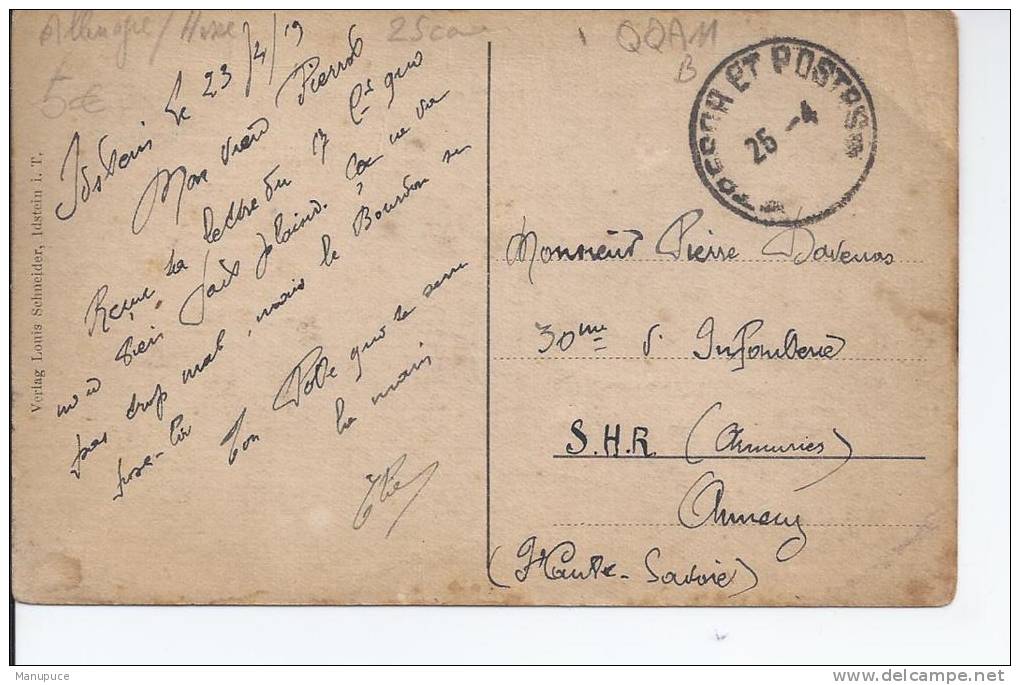 Allemagne / Hesse
25
QQAM
B
5€
Idstein le 23/4/19
Mon vieux Pierrot
Reçu ta lettre du 17 Ct qui
m'a bien fait plaisir. Ça ne va
pas trop mal, mais le Bourdon
Ton Pote qui te serre
la main
Verlag Louis Schneider, Idstein i. T.
TRESOR ET POSTES
25 -4
Monsieur Pierre Davenas
30me d'Infanterie
S.H.R. (Armuries)
Annecy
(Haute-Savoie)
Manupuce